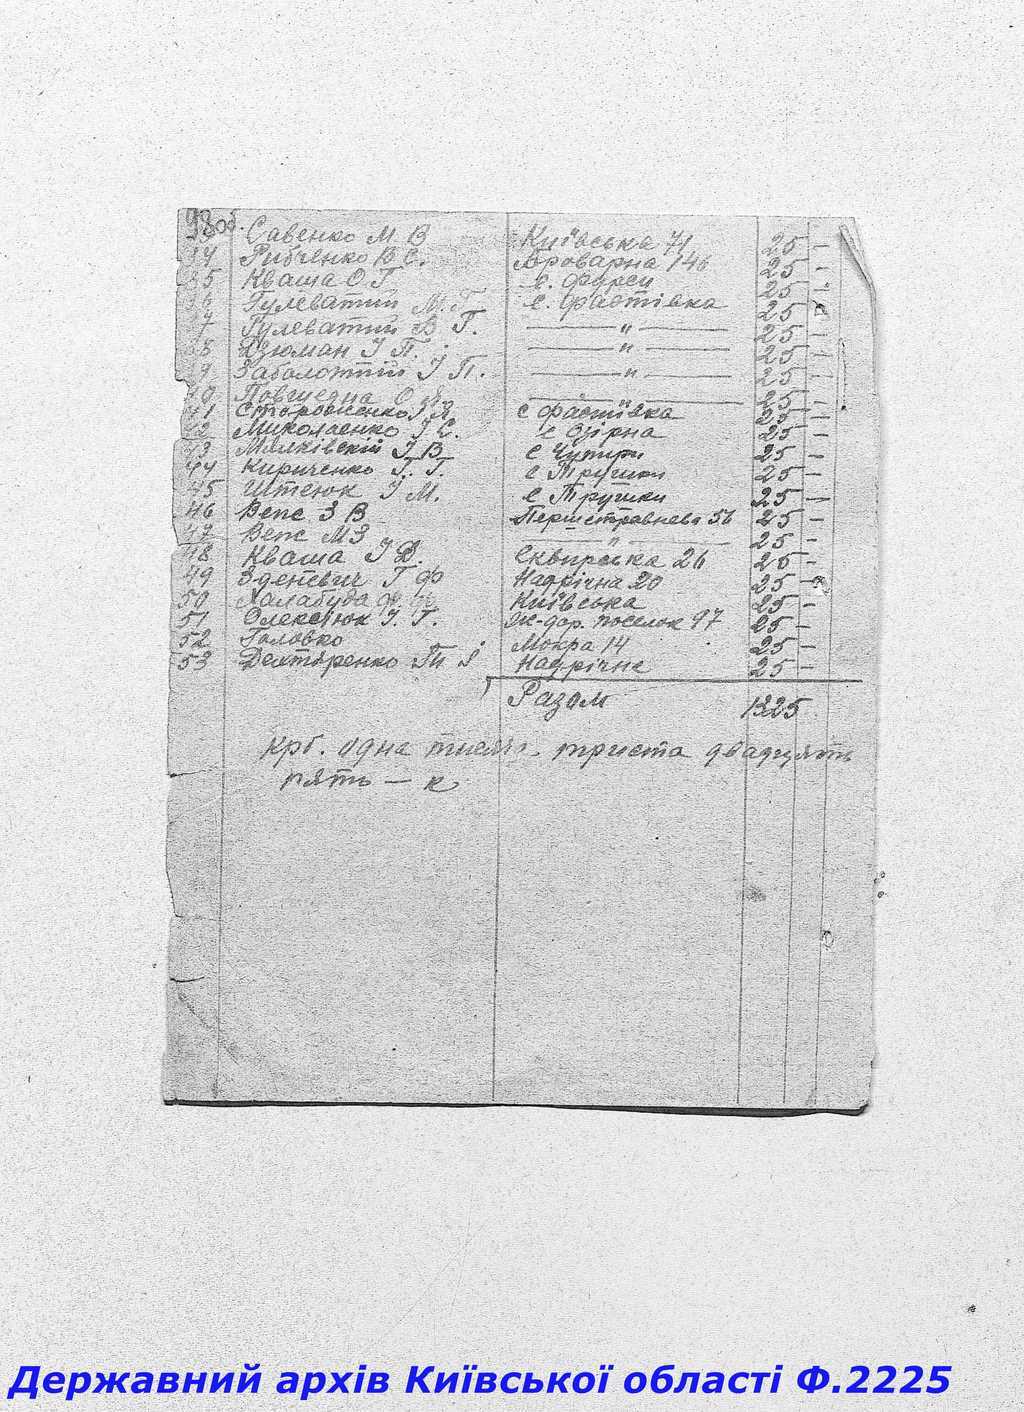 93об.
33 Савенко М. В Київська 71 25 –
34 Рибченко В С. Броварна 146 25 –
35 Кваша О Г с. Фурси 25 –
36 Гулеватий М. Г с. Фастівка 25 –
37 Гулеватий В Г. — " — 25 –
38 Дзюман І П. — " — 25 –
39 Заболотній І П. — " — 25 –
40 О 25 –
41 Стороженко І с Фастівка 25 –
42 Миколаенко І Є. с Озірна 25 –
43 І В с Чупири 25 –
44 Кириченко Г. Г с Трушки 25 –
45 Штеюк І М. с Трушки 25 –
46 Вепс З В Першетравнева 56 25 –
47 Вепс М З — " — 25 –
48 Кваша І В. Сквирська 26 25 –
49 Зденевич Г Ф Надрічна 20 25 –
50 Халабуда Київська 25 –
51 Олексюк І. Г. Ж-дор. поселок 97 25 –
52 Головко Мокра 14 25 –
53 Дехтяренко Надрічне 25 –
Разом 1325
крб. одна тисяч. триста двадцять
пять — к
Державний архів Київської області Ф.2225